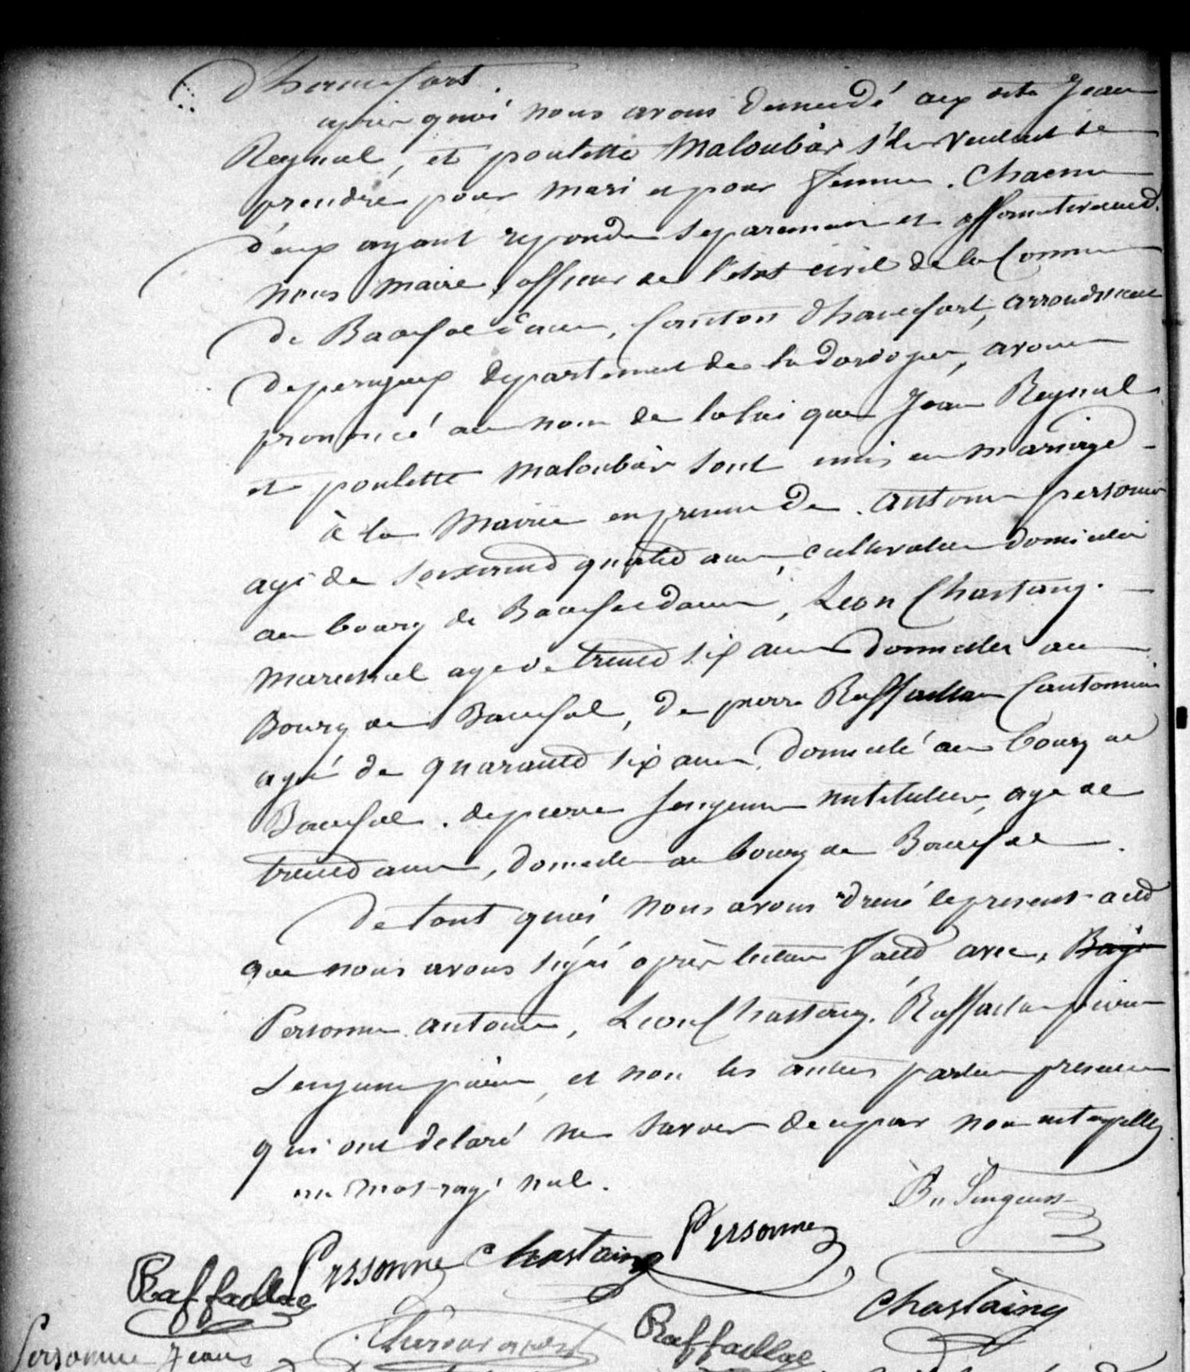 d'hautefort.
après quoi nous avons demandé aux dits Jean
Reynal, et poulette Maloubier s'ils veulent se
prendre pour mari et pour femme. Chacun
d'eux ayant repondu separement et affirmativement.
nous maire officier de l'état civil de la Commune
de, Canton d'hautefort, arrondissement
de perigueux departement de la dordogne, avons
prononcé au nom de la loi que Jean Reynal
et poulette Maloubier sont unis en mariage
à la Mairie en presence de. antoine personne
agé de quatre ans, cultivateur domicilié
au bourg de, Leon Chastaing.
marechal age de trente six ans domicilié au
Bourg de, de pierre Raffaillac Cantonnier
agé de quarante six ans, domicilié au bourg de
. de pierre instituteur, age de
trente ans, domicilié au bourg de
De tout quoi nous avons dressé le present acte
que nous avons signé après lecture faite avec,
Personne antoine, Leon Chastaing. Raffaillac pierre
pierre, et non les autres parties presentes
qui ont delaré ne savoir de ce par nous interpellés
un mot rayé nul.
Personne
Personne Chastaing
Raffaillac
Chastaing
Raffaillac
Personne Jean